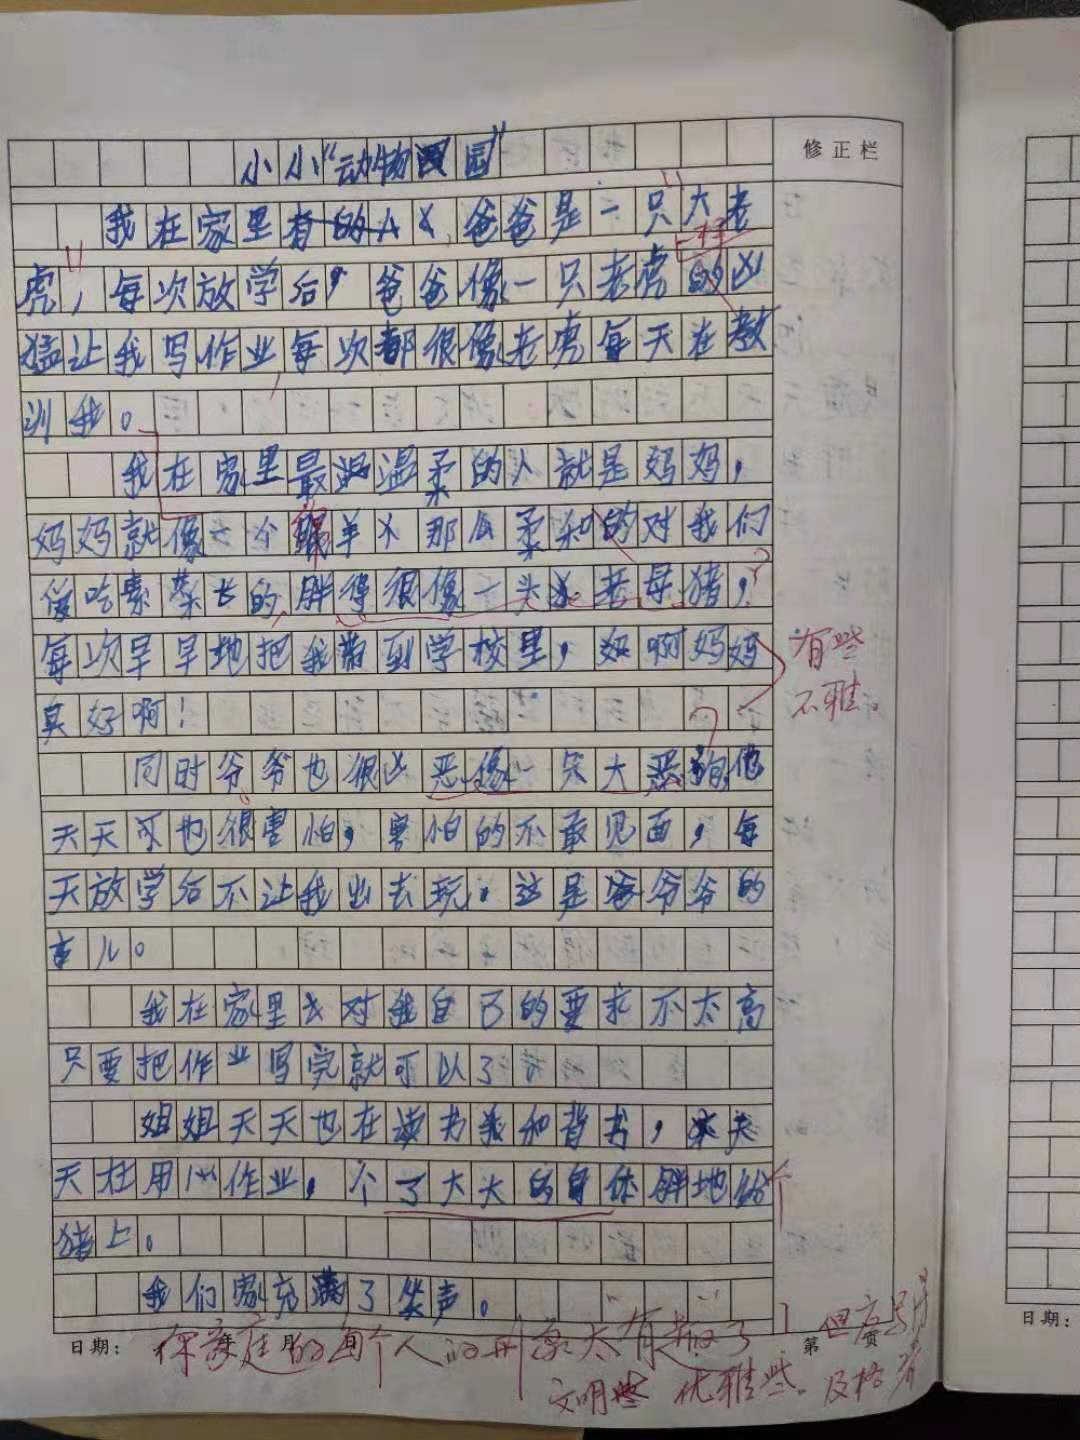 小小“动物园”
修正栏
我在家里有的人,爸爸是一只大老
虎,每次放学后,爸爸像一只老虎的凶
猛让我写作业,每次都很像老虎每天在教
训我。
我在家里最温温柔的人就是妈妈,
妈妈就像一个绵羊不那么柔和的对我们
吃素菜长的,胖得很像一头老母猪,?
每次早早地把我带到学校里,如啊妈妈
真好啊!
有些
不雅。
同时爷爷也很凶恶像一只大恶狗他
天天可也很害怕,害怕的不敢见面,每
天放学后不让我出去玩,这是爷爷的
我在家里我对我自己的要求不太高
只要把作业写完就可以了。
姐姐天天也在读书我和背书,天
天在用心作业,个了大大的身体胖地似个
猪上。
我们家充满了笑声。
日期: 年 月
第 页
你家庭的每个人的形象太有趣了
但应写得
文明些 优雅些。及格
日期: